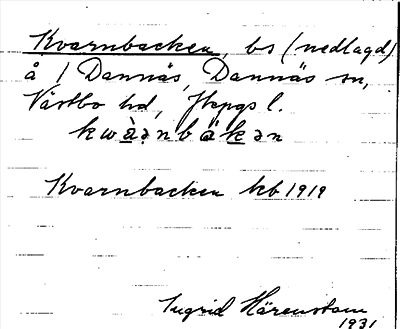 Kvarnbacken, bs (nedlagd)
å / Dannäs, Dannäs sn,
Västbo hd, Jkpgs l.
kwàənbákən
Kvarnbacken kb 1919
Ingrid Härenstam
1931